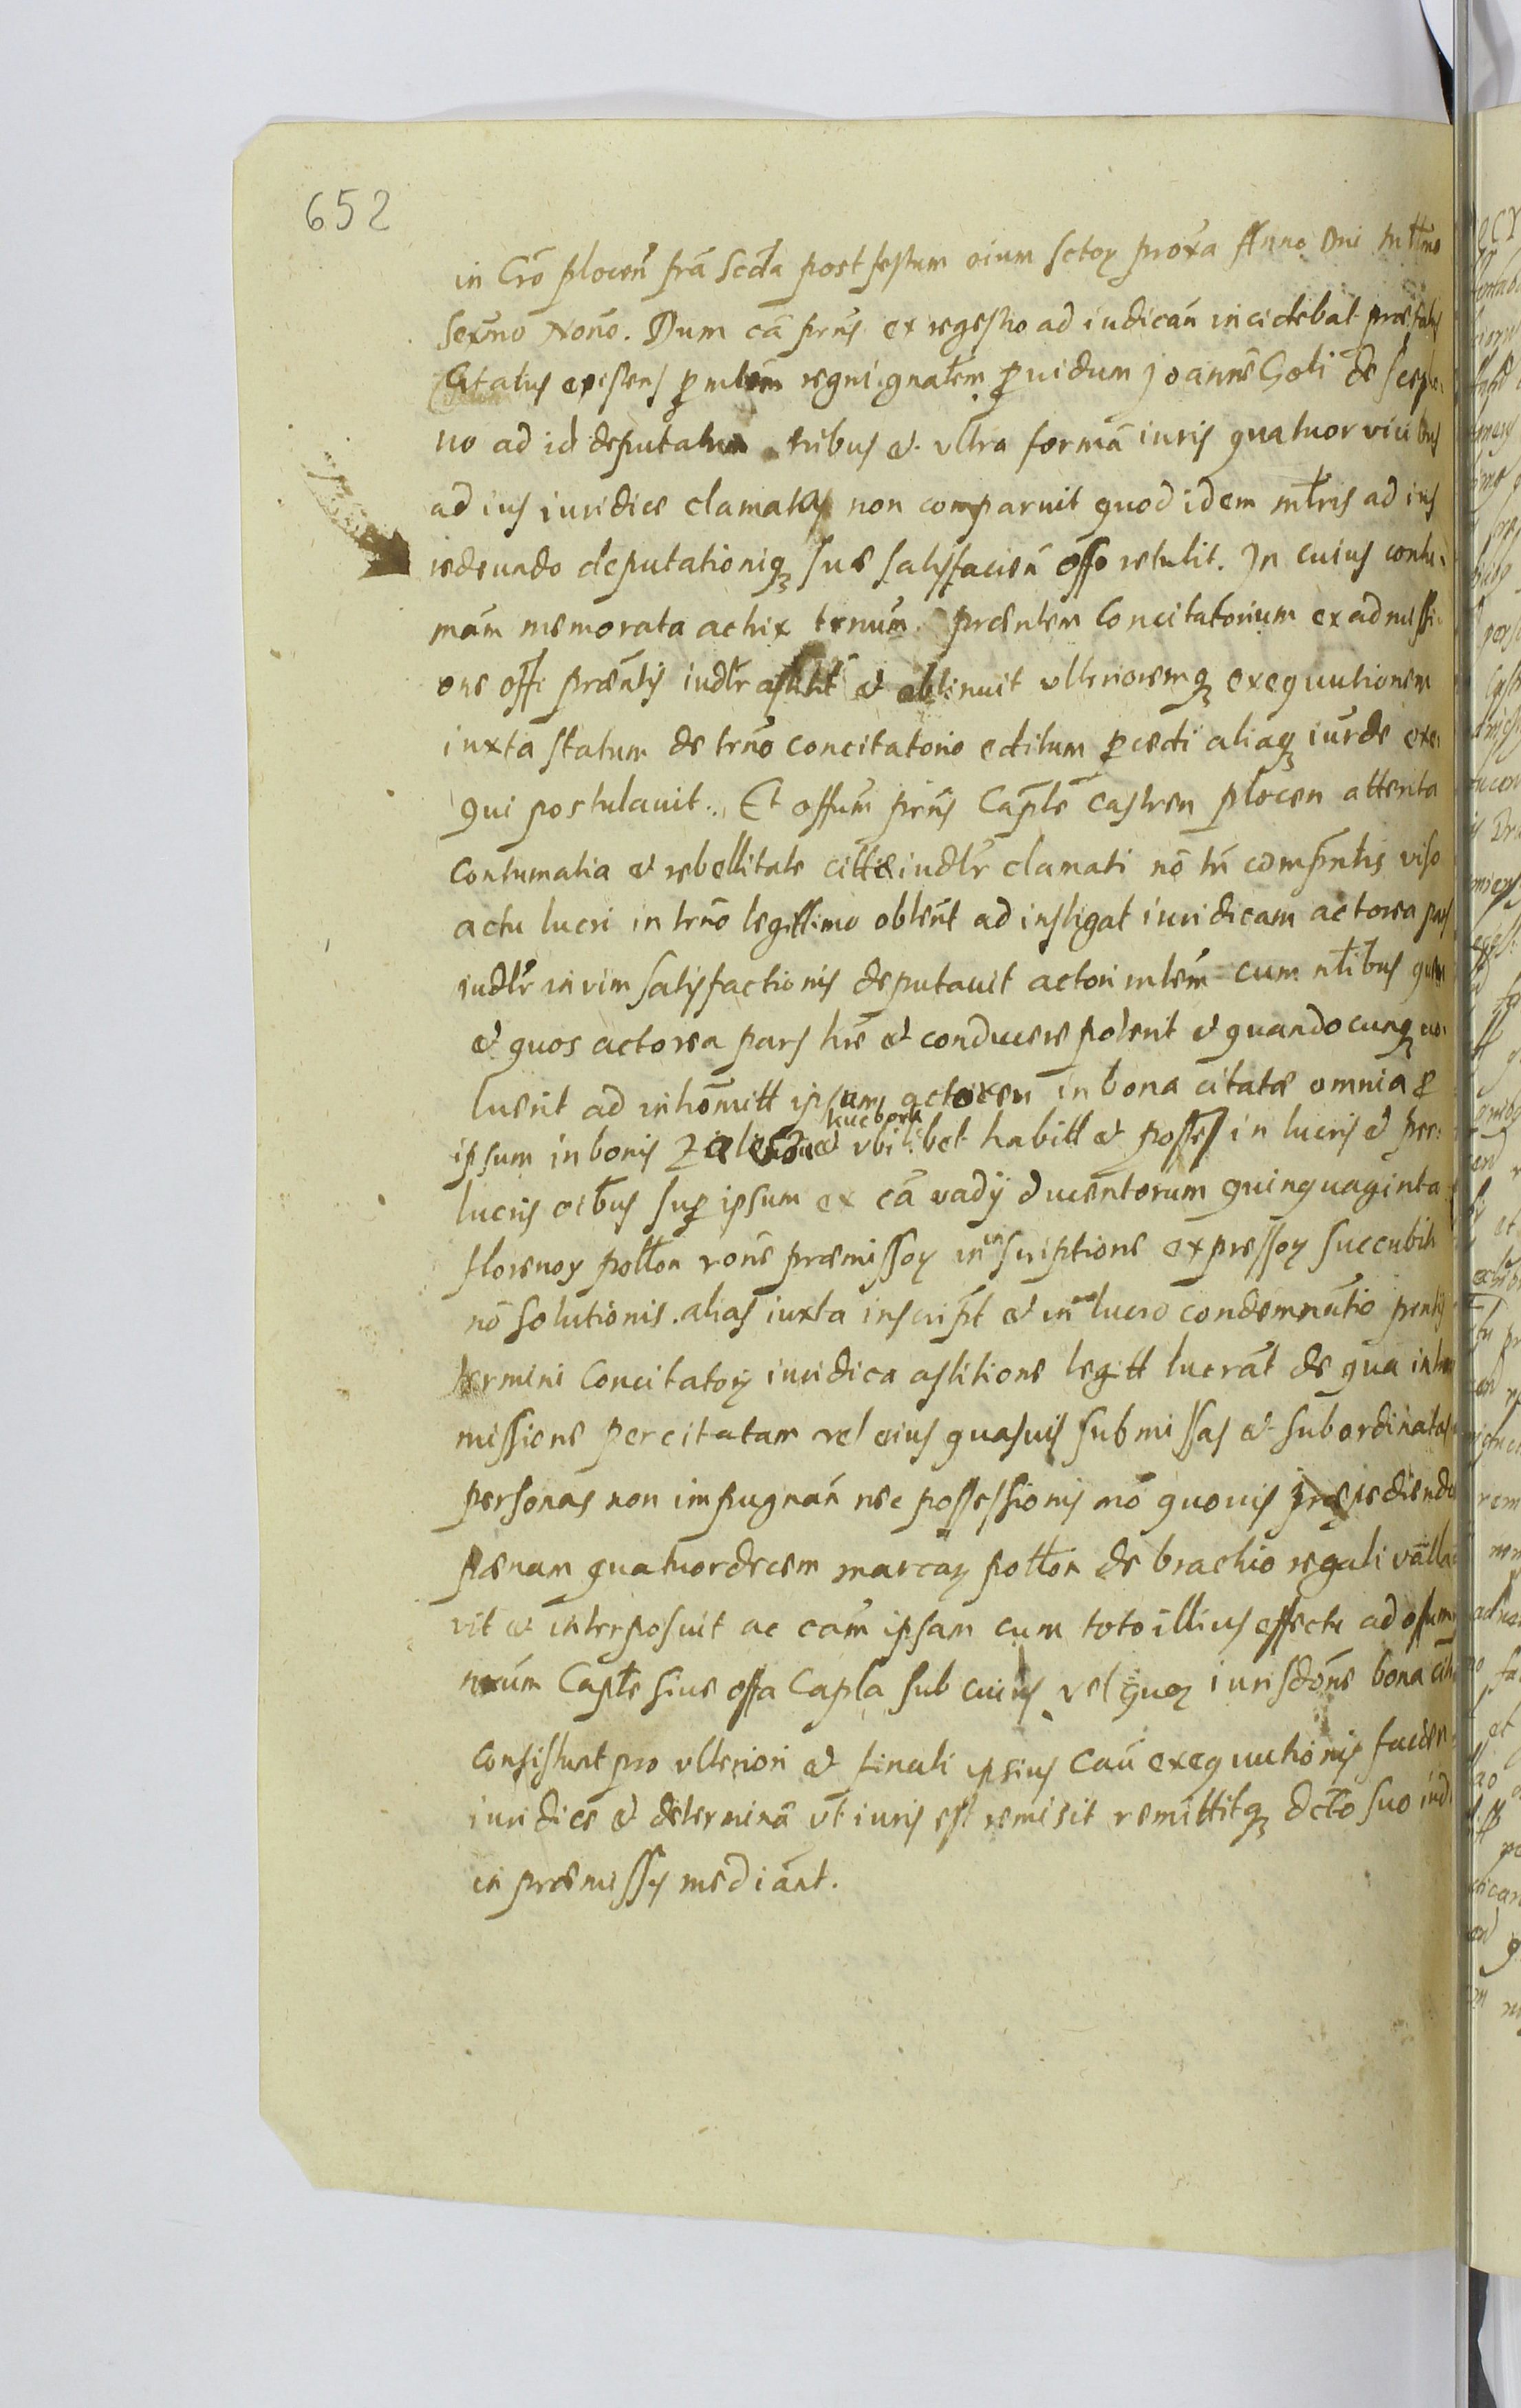 652
in Crō plocen̄ fr̄a Scd̄a post festum oium sctoɤ prox̄a Anno Dni Mill̄mo
sexm̄o Nono. Dum cā prn̄s ex regestro ad iudican̄ incidebat præfatus
Citatus existens ꝑ mlēm regni gnalem ꝓuidum Joannē Goli de
no ad id deputatum tribus et vltra formā iuris quatuor vicibus
ad ius iuridice clamatus non comparuit quod idem mltris ad ius
redeundo deputationiqꝫ suæ satisfacien̄ offo retulit. In cuius contu-
mām memorata actrix trnūm præntem Concitatorium ex admissi-
one offi præntis iudlr astitit et obtinuit vlterioremqꝫ exequutionem
iuxta statum de trnō concitatorio editum ꝓcedi aliaqꝫ iurde exe-
qui postulauit. Et offum prn̄s Caplē castren plocen attenta
contumatia et rebellitate cittæ iudlr clamati nō tn̄ comprntis viso
actu lucri in trnō legittimo obtent̄ ad instigat iuridicam actorea pars
iudlr in vim satisfactionis deputauit actori mlēm cum nl̄ibus quem
et quos actorea pars hr̄e et conducere poterit et quandocunqꝫ uo-
luerit ad introm̄itt ipsum actorem in bona citatæ omnia ꝑ
kuczbork
ipsum in bonis et vbilibet habitt et posses in lucris et per-
lucris oibus suꝑ ipsum ex cā vadÿ ducentorum quinquaginta
florenoɤ pollon rone præmissoɤ in inscriptione expressoɤ succubit
nō solutionis. alias iuxta inscript et in lucro condemnatio prntis
termini Concitatorÿ iuridica astitione legitt lucrāt de qua intro
missione per citatam vel eius quasuis submissas et subordinatas
personas non impugnān nec possessionis mō quouis præpediendo
pænam quatuordecem marcaɤ pollon de brachio regali valla-
uit et interposuit ac cām ipsam cum toto illius effectu ad offum
Caplē siue offa Capla sub cuius vel quoɤ iurisdōne bona citt
consistunt pro vlteriori et finali ipsius Cau exequutionis faciend
iuridice et determinā vt iuris est remisit remittitqꝫ dcto suo iud
in præmissis mediant.